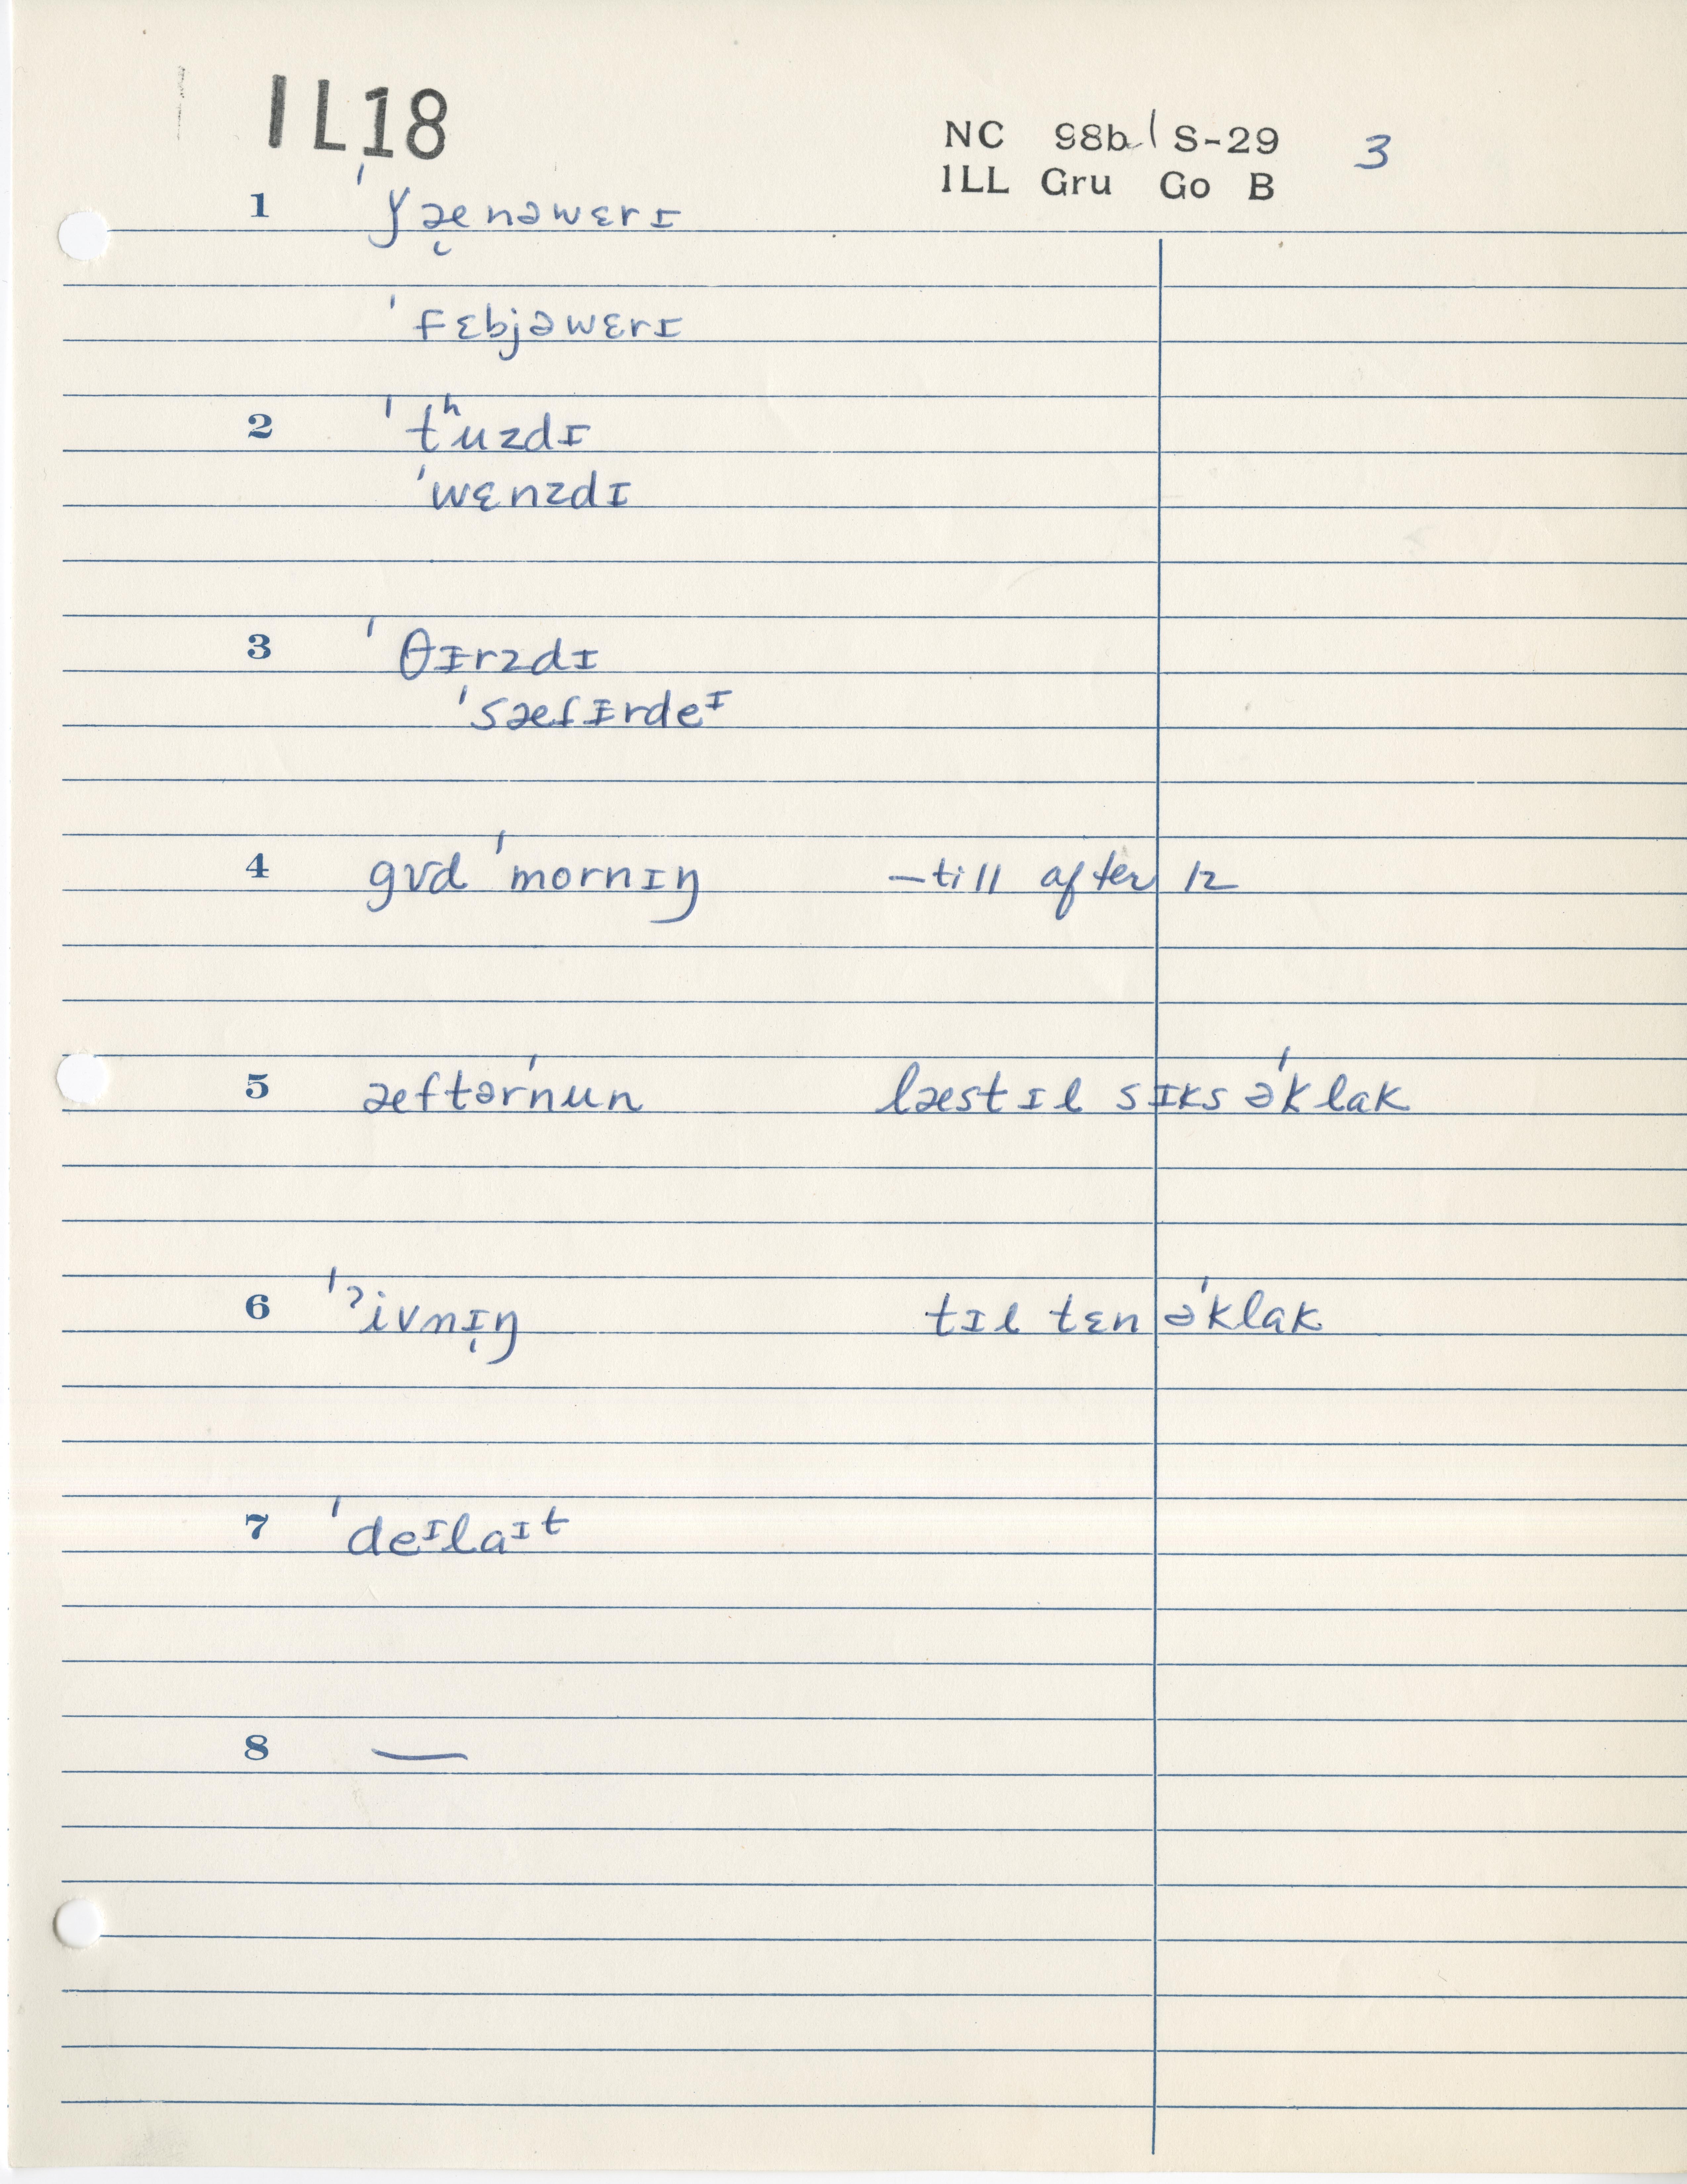 IL18
NC 98b/ S-29 3
ILL Gru Go B
1 ˈɣæ̜nəwɛrɪ
ˈfɛbjəwɛrɪ
2 ˈtʰuzdɪ
ˈwɛnzdɪ
3 ˈθɪ̵rzdɪ
ˈsæfɪ̵rdeᶦ
4 gʊd ˈmornɪŋ –till after 12
5 æftərˈnun læstɪl sɪks əˈklak
6 ˈʔivnɪ̜ŋ tɪl tɛn əˈklak
7 ˈdeᶦlaᶦt
8 —